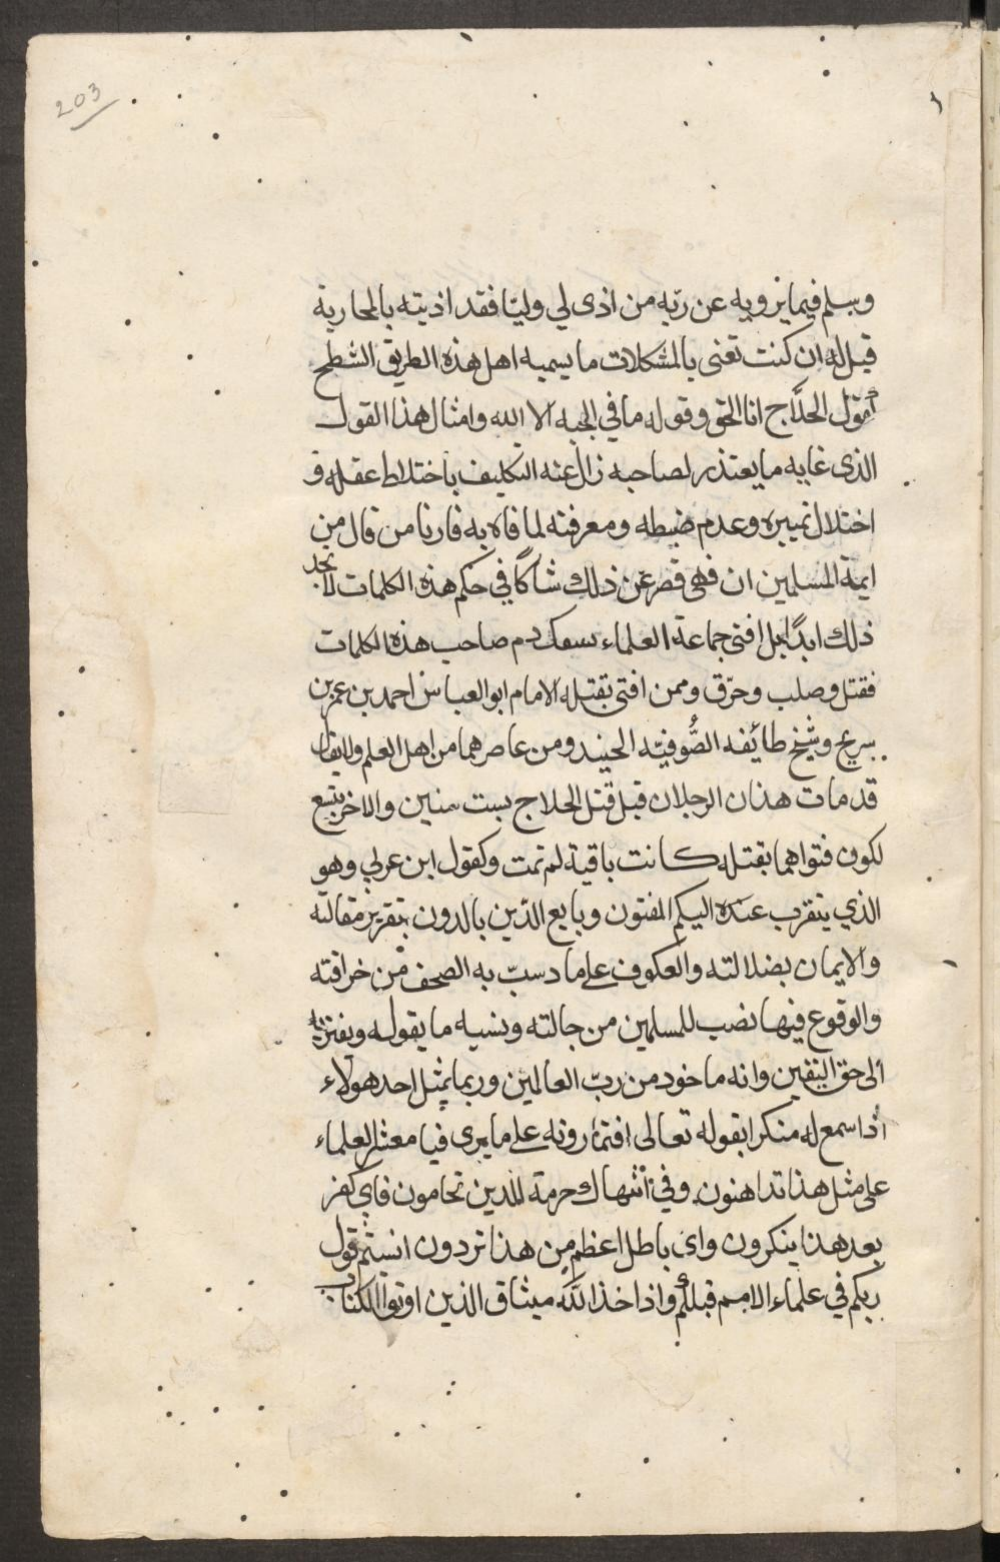 203
وسلم فيما يرويه عن ربّه من اذى لي وليّا فقد اذيته بالمحاربة
قيل له ان كنت تعنى بالمشكلات ما يسميه اهل هذه الطريق الشطح
كقول الحلّاج انا الحق وقوله ما في الجبه الا الله وامثال هذا القول
الذى غايه ما يعتذر لصاحبه زال عنه التكليف باختلاط عقله و
اختلال تمييزه وعدم ضبطه ومعرفته لما فاه به فارنا من قال من
ايمة المسلمين ان فهمى قصر عن ذلك شاكًّا في حكم هذه الكلمات لا تجد
ذلك ابدًا بل افتى جماعة العلماء بسفك دم صاحب هذه الكلمات
فقتل وصلب وحرّق وممن افتى بقتله الامام ابو العباس احمد بن عمر بن
سريج وشيخ طائفه الصُّوفيّه الجنيد ومن عاصرهما من اهل العلم ولا يقال
قد مات هذان الرجلان قبل قتل الحلاج بست سنين والاخر بتسع
لكون فتواهما بقتله كانت باقية لم تمت وكقول ابن عربي وهو
الذي يتقرب عنده اليكم المفتون وبايع الدّين بالدون بتقرير مقالته
والايمان بضلالته والعكوف على ما دسبّ به الصحف من خرافته
والوقوع فيها نصب للمسلمين من جالته ونسبه ما يقوله ويفتريه
الى حق اليقين وانه ماخود من ربّ العالمين وربما يمثل احد هولاء
أذا سمع له منكرا بقوله تعالى افتمارونه على ما يرى فيا معشر العلماء
على مثل هذا تداهنون وفي انتهاك حرمة للدين تحامون فاي كفر
بعد هذا ينكرون واى باطل اعظم من هذا تردون انسيتم قول
ربكم في علماء الامم قبلكم واذ اخذ الله ميثاق الذين اوتوا الكتاب